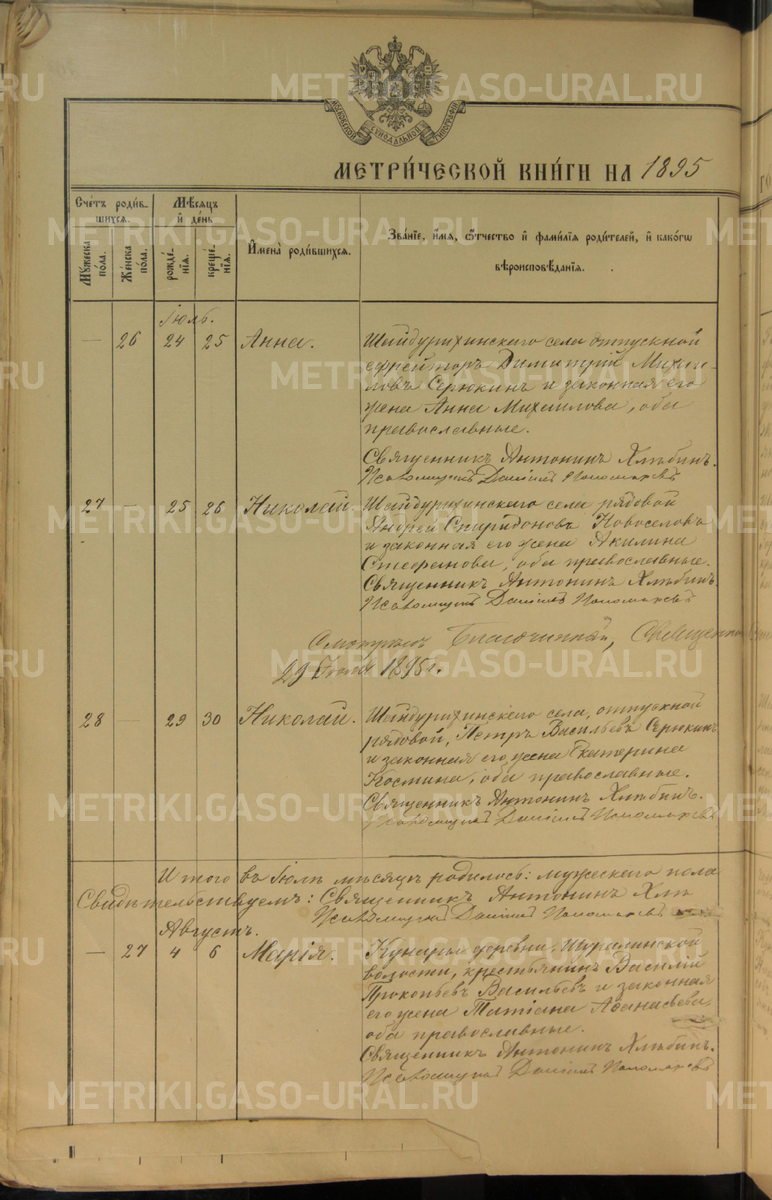 МОСКОВСКОЙ СѴНОДАЛЬНОЙ ТИПОГРАФІИ
МЕТРИ́ЧЕСКОЙ КНИ́ГИ НА 1895
Сче́тъ роди́вшихся.
Мѣ́сяцъ и҆ де́нь
И҆мена̀ роди́вшихся.
Зва́ніе, и҆́мя, ѻ҆́тчество и҆ фами́лія роди́телей, и҆ како́гѡ
вѣроисповѣ́данія.
Му́жеска по́ла.
Же́нска по́ла.
рожде́нія.
креще́нія.
Іюль.
— 26 24 25 Анна. Шайдурихинскаго села отпускной
ефрейторъ Димитрій Михаи-
ловъ Серюкинъ и законная его
жена Анна Михаилова, оба
православные.
Священникъ Антонинъ Хлѣбинъ.
Псаломщикъ Даніилъ Пономаревъ
27 — 25 26 Николай. Шайдурихинскаго села рядовой
Андрей Спиридоновъ Новоселовъ
и законная его жена Акилина
Стефанова, оба православные.
Священникъ Антонинъ Хлѣбинъ.
Псаломщикъ Даніилъ Пономаревъ
Смотрѣлъ Благочинный, Священни
29 Іюля 1895 г.
28 — 29 30 Николай. Шайдурихинскаго села, отпускной
рядовой, Петръ Васильевъ Серюкинъ
и законная его жена Екатерина
Космина, оба православные.
Священникъ Антонинъ Хлѣбинъ.
Псаломщикъ Даніилъ Пономаревъ
И того въ Іюлѣ мѣсяцѣ родилось: мужескаго пола
Свидѣтельствуемъ: Священникъ Антонинъ Хлѣ
Псаломщикъ Даніилъ Пономаревъ
Августъ.
— 27 4 6 Марія. Кунарье деревни, Шуралинской
волости, крестьянинъ Василій
Прокопьевъ Васильевъ и законная
его жена Татіана Аѳанасьева
оба православные.
Священникъ Антонинъ Хлѣбинъ.
Псаломщикъ Даніилъ Пономаревъ
METRIKI.GASO-URAL.RU